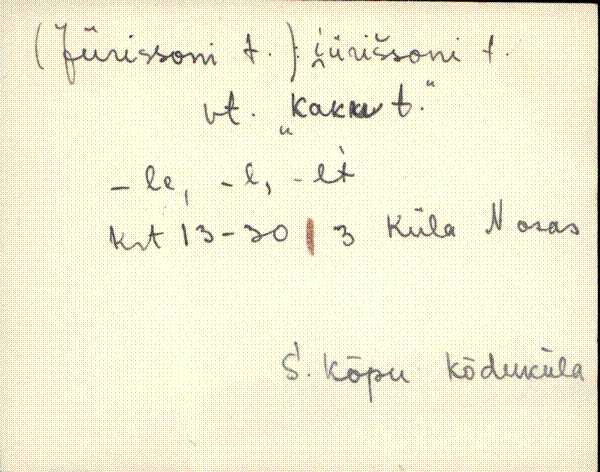 (Jürissoni t.): i̯ürišsoni t.
vt. "Kakku t."
-le, -l, -lt
krt 13-30 | 3 Küla N osas
S. Kõpu Kõduküla